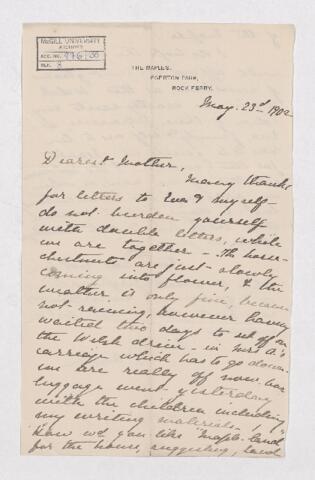 McGILL UNIVERSITY
ARCHIVES
ACC. NO. 976/00
REF. 8
THE MAPLES,
EGERTON PARK,
ROCK FERRY.
May. 23rd 1902
Dearest Mother,
Many thanks
for letters to Eva & myself -
do not burden yourself
with double letters, while
we are together - The horse-
chestnuts are just slowly
coming into flower, & the
weather is only fine, because
not raining, however having
waited two days to set off on
the Welsh drive - in Mrs A.'s
carriage which has to go down
we are really off now, our
luggage went yesterday
with the children including
my writing materials.
How wd you like "Maple-land"
for the house, suggesting, land